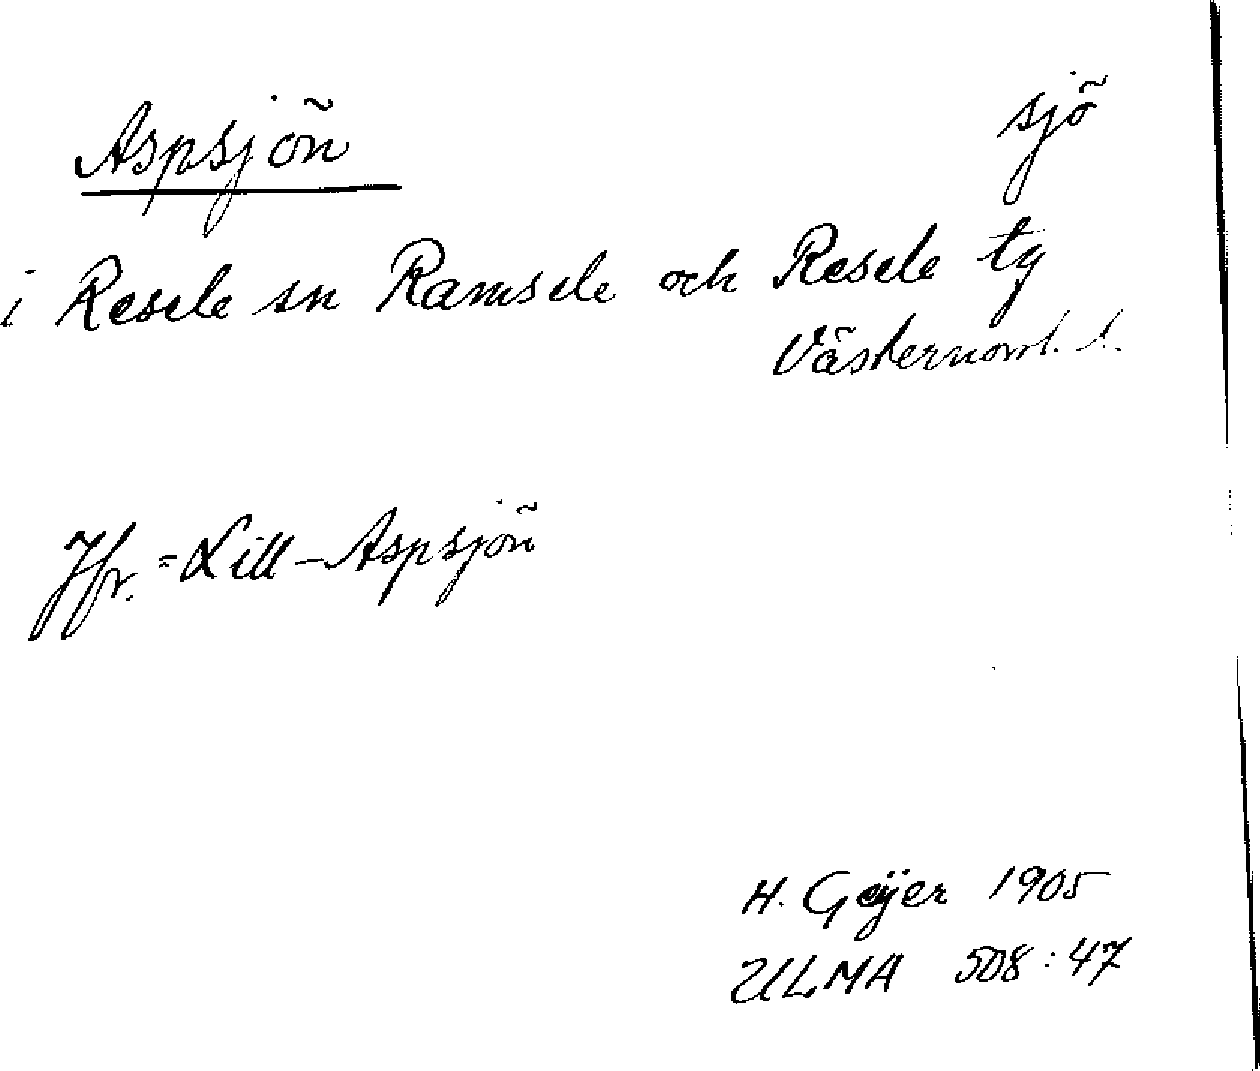 Aspsjön sjö
i Resele sn Ramsele och Resele tg
Västernorrl. l.
Jfr. = Lill-Aspsjön
H. Geijer 1905
ULMA 508:47